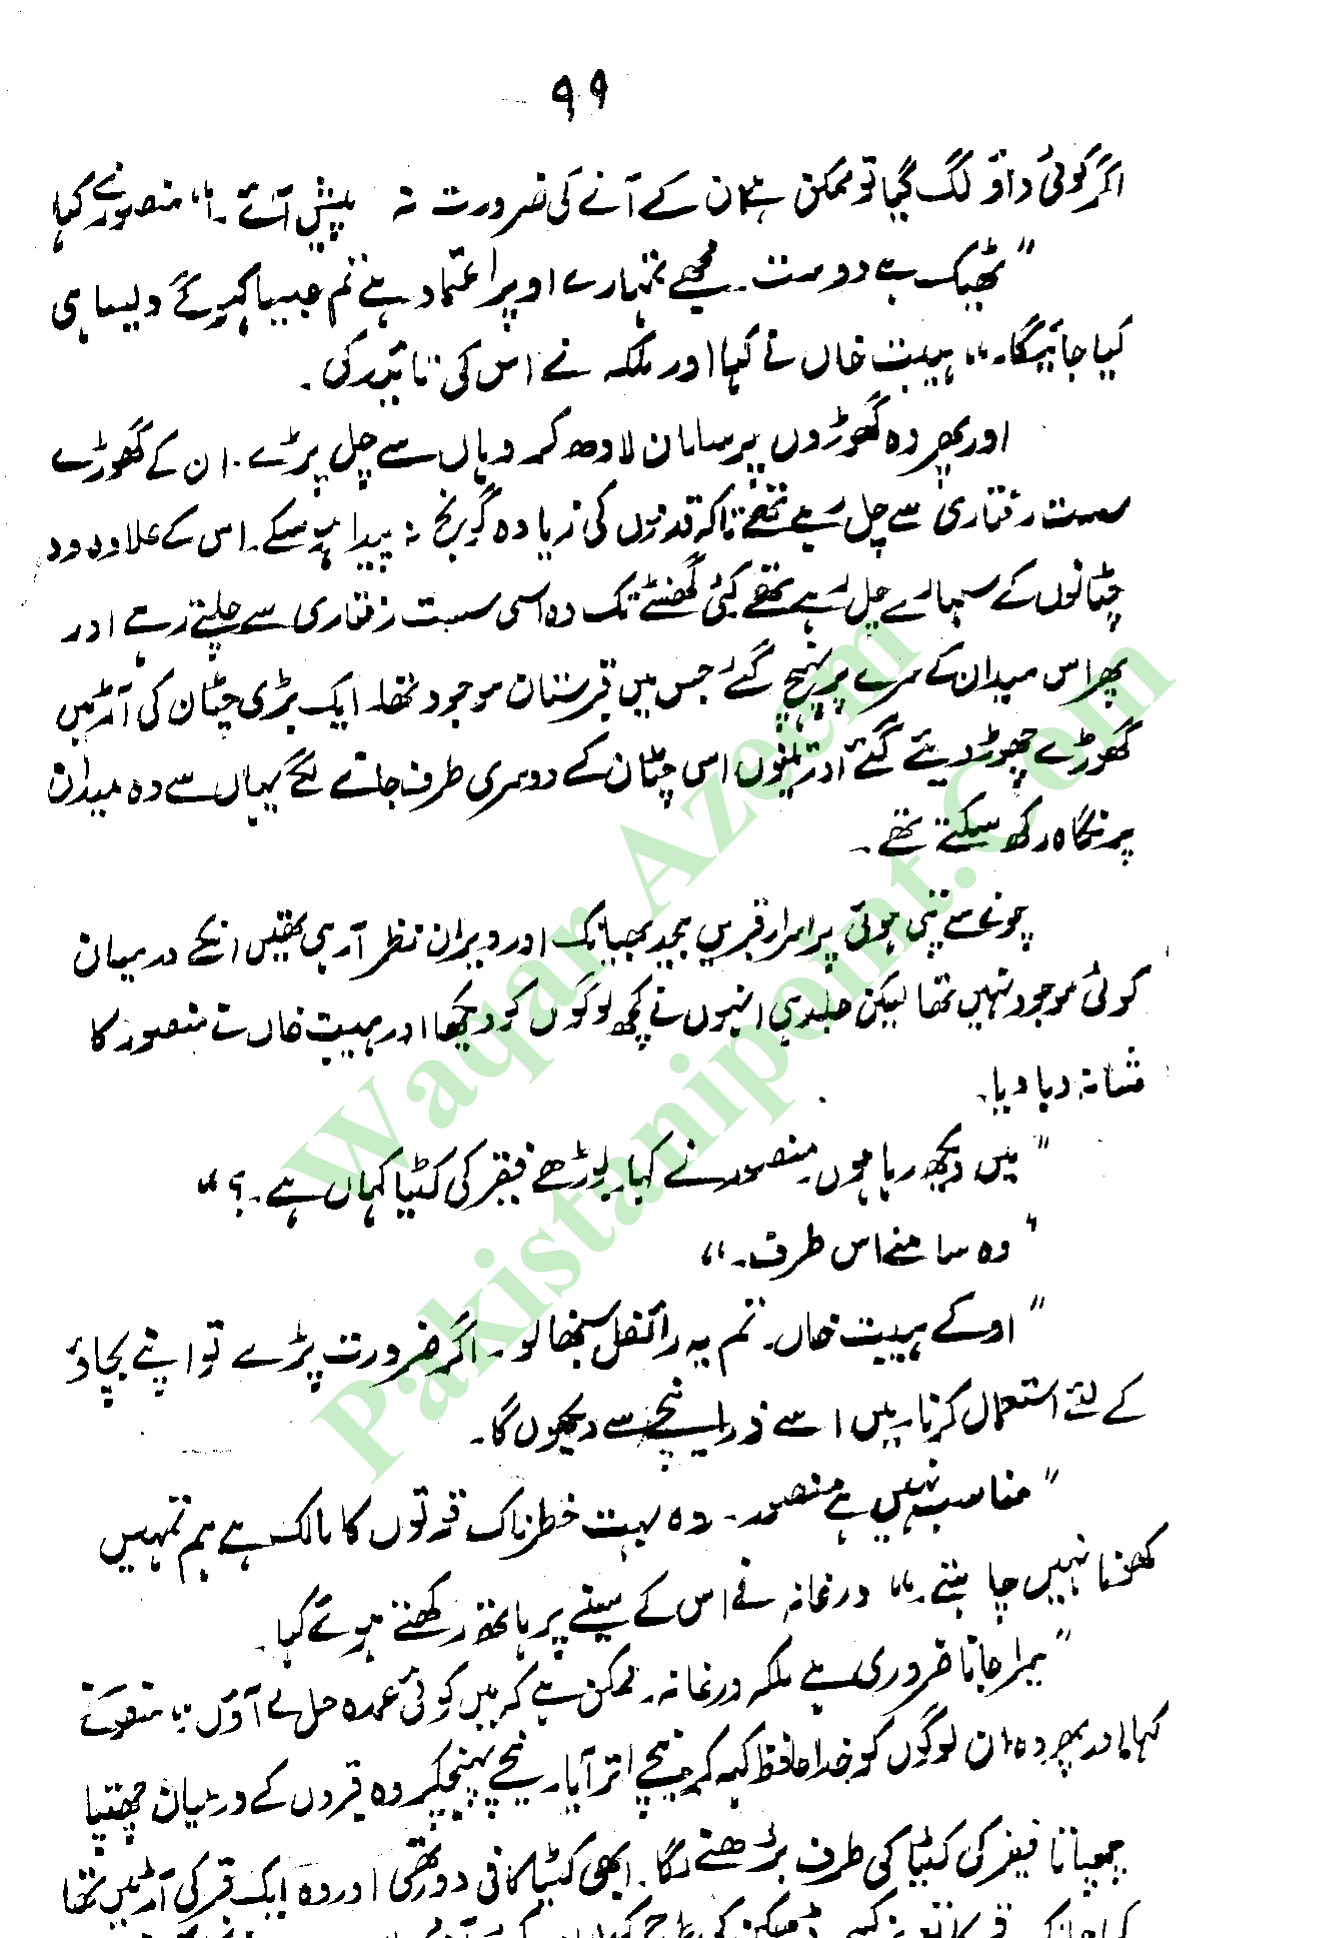 ۹۹
اگر کوئی داؤ لگ گیا تو ممکن ہے ان کے آنے کی ضرورت نہ پیش آئے۔" منصور نے کہا
"ٹھیک ہے دوست۔ مجھے تمہارے اوپر اعتماد ہے تم جیسا کہو گے ویسا ہی
کیا جائیگا۔" ہیبت خاں نے کہا اور ملکہ نے اس کی تائید کی۔
اور پھر وہ گھوڑوں پر سامان لادھ کر وہاں سے چل پڑے۔ ان کے گھوڑے
سست رفتاری سے چل رہے تھے تاکہ قدموں کی زیادہ گونج نہ پیدا ہو سکے۔ اس کے علاوہ وہ
چٹانوں کے سہارے چل رہے تھے کئی گھنٹے تک وہ اسی سست رفتاری سے چلتے رہے اور
پھر اس میدان کے سرے پر پہنچ گئے جس میں قبرستان موجود تھا۔ ایک بڑی چٹان کی آڑ میں
گھوڑے چھوڑ دیئے گئے اور تینوں اس چٹان کے دوسری طرف جانے لگے یہاں سے وہ میدان
پر نگاہ رکھ سکتے تھے۔
چونے سے بنی ہوئی پراسرار قبریں بیحد بھیانک اور ویران نظر آ رہی تھیں انکے درمیان
کوئی موجود نہیں تھا لیکن جلد ہی انہوں نے کچھ لوگوں کو دیکھا اور ہیبت خاں نے منصور کا
شانہ دبا دیا۔
"میں دیکھ رہا ہوں۔ منصور نے کہا۔ بوڑھے فقیر کی کٹیا کہاں ہے۔؟"
"وہ سامنے اس طرف۔"
"اوکے ہیبت خاں۔ تم یہ رائفل سنبھالو۔ اگر ضرورت پڑے تو اپنے بچاؤ
کے لئے استعمال کرنا میں اسے ذرا نیچے سے دیکھوں گا۔
"مناسب نہیں ہے منصور۔ وہ بہت خطرناک قوتوں کا مالک ہے ہم تمہیں
کھونا نہیں چاہتے۔" درغانہ نے اس کے سینے پر ہاتھ رکھتے ہوئے کہا۔
"میرا جانا ضروری ہے ملکہ درغانہ۔ ممکن ہے کہ میں کوئی عمدہ حل لے آؤں۔" منصور نے
کہا اور پھر وہ ان لوگوں کو خدا حافظ کہہ کر نیچے اتر آیا۔ نیچے پہنچکر وہ قبروں کے درمیان چھپتا
چھپاتا فقیر کی کٹیا کی طرف بڑھنے لگا۔ ابھی کٹیا کافی دور تھی اور وہ ایک قبر کی آڑ میں تھا
Waqar Azeem
Pakistanipoint.Com